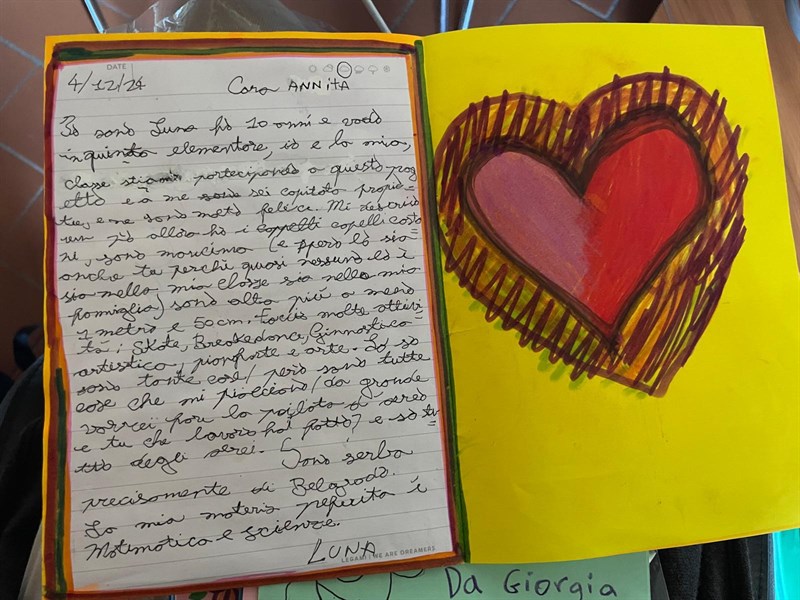 DATE
4/12/24
Cara ANNITA
Io sono Luna ho 10 anni e vado
in quinta elementare, io e la mia,
classe stiamo partecipando a questo prog
etto e a me sei capitata proprio
tu, e ne sono molto felice. Mi descrivo
un pò allora ho i capelli casta
ni, sono mancina (e spero lo sia
anche te perchè quasi nessuno lo è
sia nella mia classe sia nella mia
famiglia) sono alta più o meno
1 metro e 50 cm. Faccio molte attivi
tà: Skate, Breakedance, Ginnastica
artistica, pianoforte e arte. Lo so
sono tante cose/ però sono tutte
cose che mi piacciono/da grande
vorrei fare la pilota di aereo
e tu che lavoro hai fatto? e so tu=
tto degli aerei. Sono serba
precisamente di Belgrado.
La mia materia preferita è
Matematica e scienze.
LUNA
LEGAMI | WE ARE DREAMERS
Da Giorgia